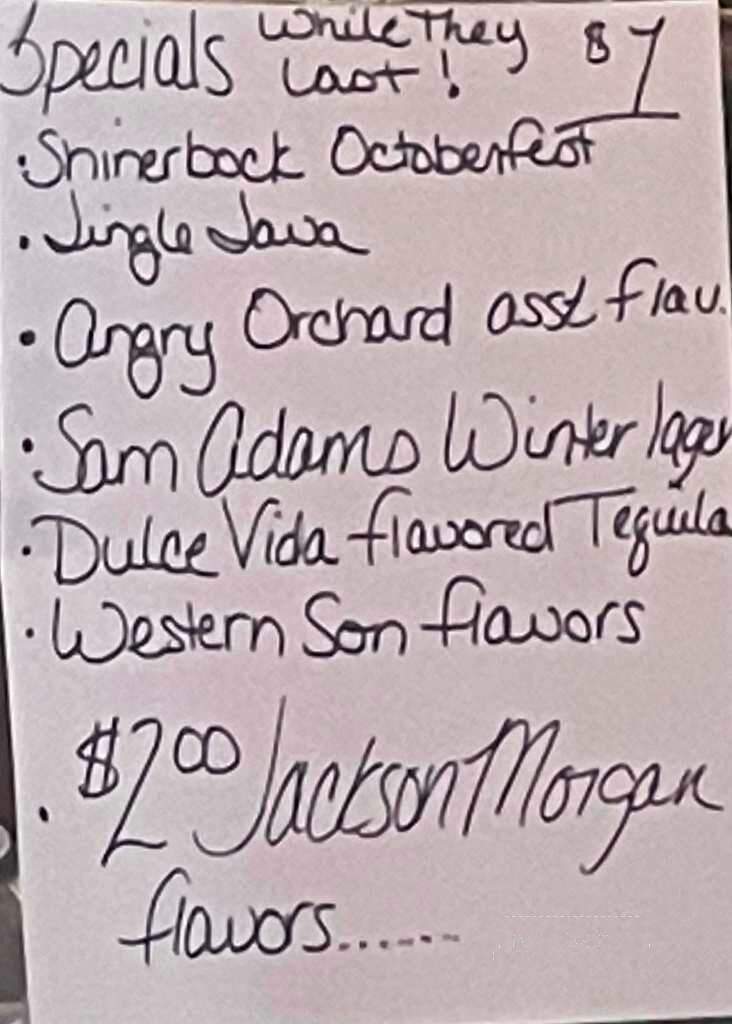 Specials While They Last! $1
• Shinerbock Octoberfest
• Jingle Java
• Angry Orchard asst flav.
• Sam Adams Winter lager
• Dulce Vida flavored Tequila
• Western Son flavors
• $2.00 Jackson Morgan
flavors......